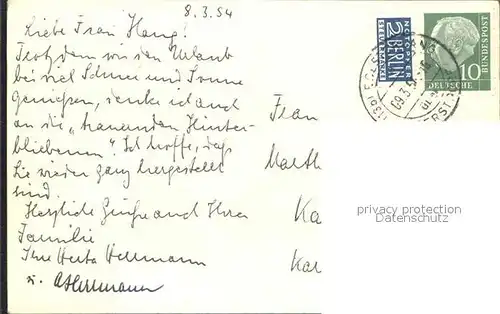 8.3.54
Liebe Frau Haug!
Trotzdem wir den Urlaub
bei viel Schnee und Sonne
genießen, denke ich auch
an die „trauernden Hinter-
bliebenen". Ich hoffe, daß
Sie wieder ganz hergestellt
sind.
Herzliche Grüße auch Ihrer
Familie
Ihre Herta Hellmann
u.
NOTOPFER
2 BERLIN
STEUERMARKE
10
DEUTSCHE
BUNDESPOST
09.3.54
Frau
Marth
Ka
Kar
privacy protection
Datenschutz